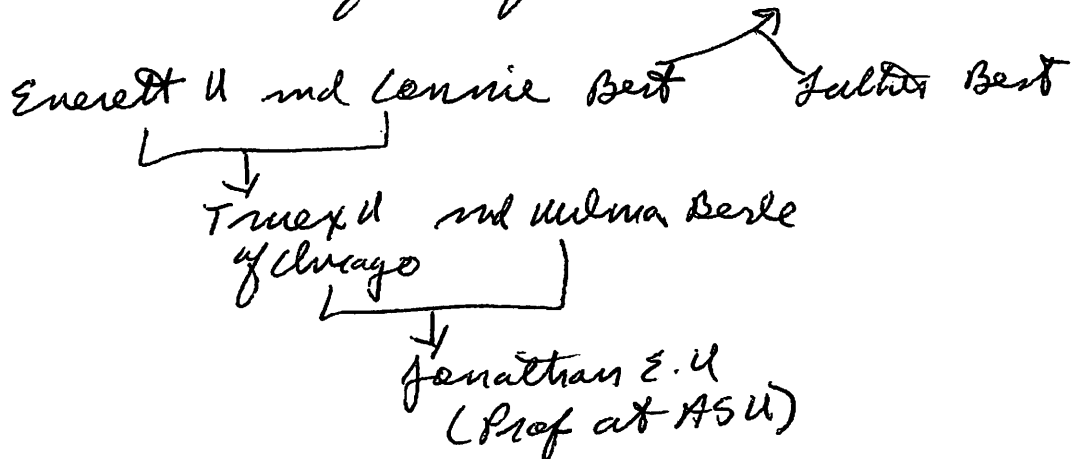 Everett U md Connie Best Best
Truex U md Wilma Berle
of Chicago
Jonathan E. U
(Prof at ASU)